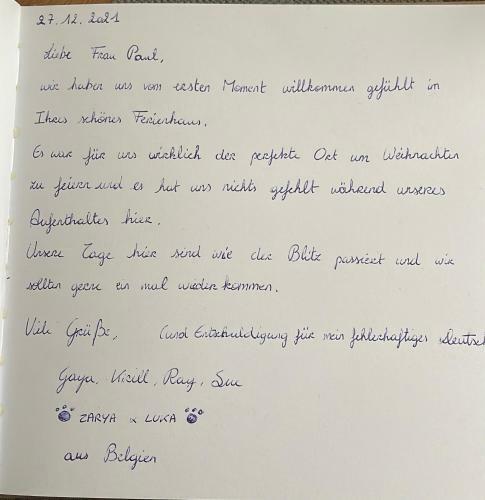 27.12.2021
Liebe Frau Paul,
wir haben uns vom ersten Moment willkommen gefühlt in
Ihres schönes Ferienhaus.
Es war für uns wirklich der perfekte Ort um Weihnachten
zu feiern und es hat uns nichts gefehlt während unseres
Aufenthaltes hier.
Unsere Tage hier sind wie der Blitz passiert und wir
sollten gerne ein mal wieder kommen.
Viele Grüße, (und Entschuldigung für mein fehlerhaftiges Deutsch
Gaya, Kirill, Ray, Su
ZARYA & LUKA
aus Belgien